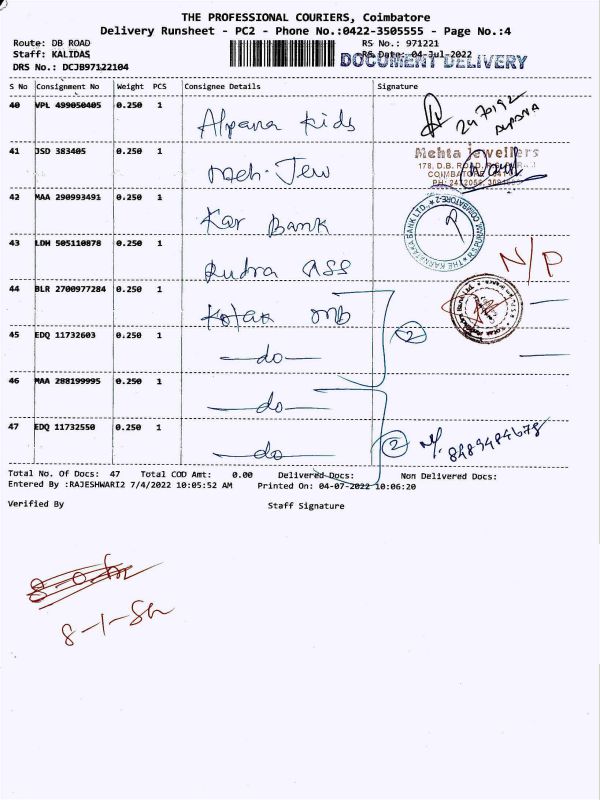 THE PROFESSIONAL COURIERS, Coimbatore
Delivery Runsheet - PC2 - Phone No.:0422-3505555 - Page No.:4
Route: DB ROAD RS No.: 971221
Staff: KALIDAS RS Date: 04-Jul-2022
DOCUMENT DELIVERY
DRS No.: DCJB97122104
S No Consignment No Weight PCS Consignee Details Signature
40 VPL 499050405 0.250 1 Alpana Kids
41 JSD 383405 0.250 1 Meh. Jew
Mehta Jewellers
178, D.B. ROAD
COIMBATORE
42 MAA 290993491 0.250 1 Kar Bank
THE KARNATAKA BANK LTD., COIMBATORE-2
43 LDH 505110878 0.250 1 Rudra ASS N/P
44 BLR 2700977284 0.250 1 Kotak MB
45 EDQ 11732603 0.250 1 do 2
46 MAA 288199995 0.250 1 do
47 EDQ 11732550 0.250 1 do 2 8489484678
Total No. Of Docs: 47 Total COD Amt: 0.00 Delivered Docs: Non Delivered Docs:
Entered By :RAJESHWARI2 7/4/2022 10:05:52 AM Printed On: 04-07-2022 10:06:20
Verified By Staff Signature